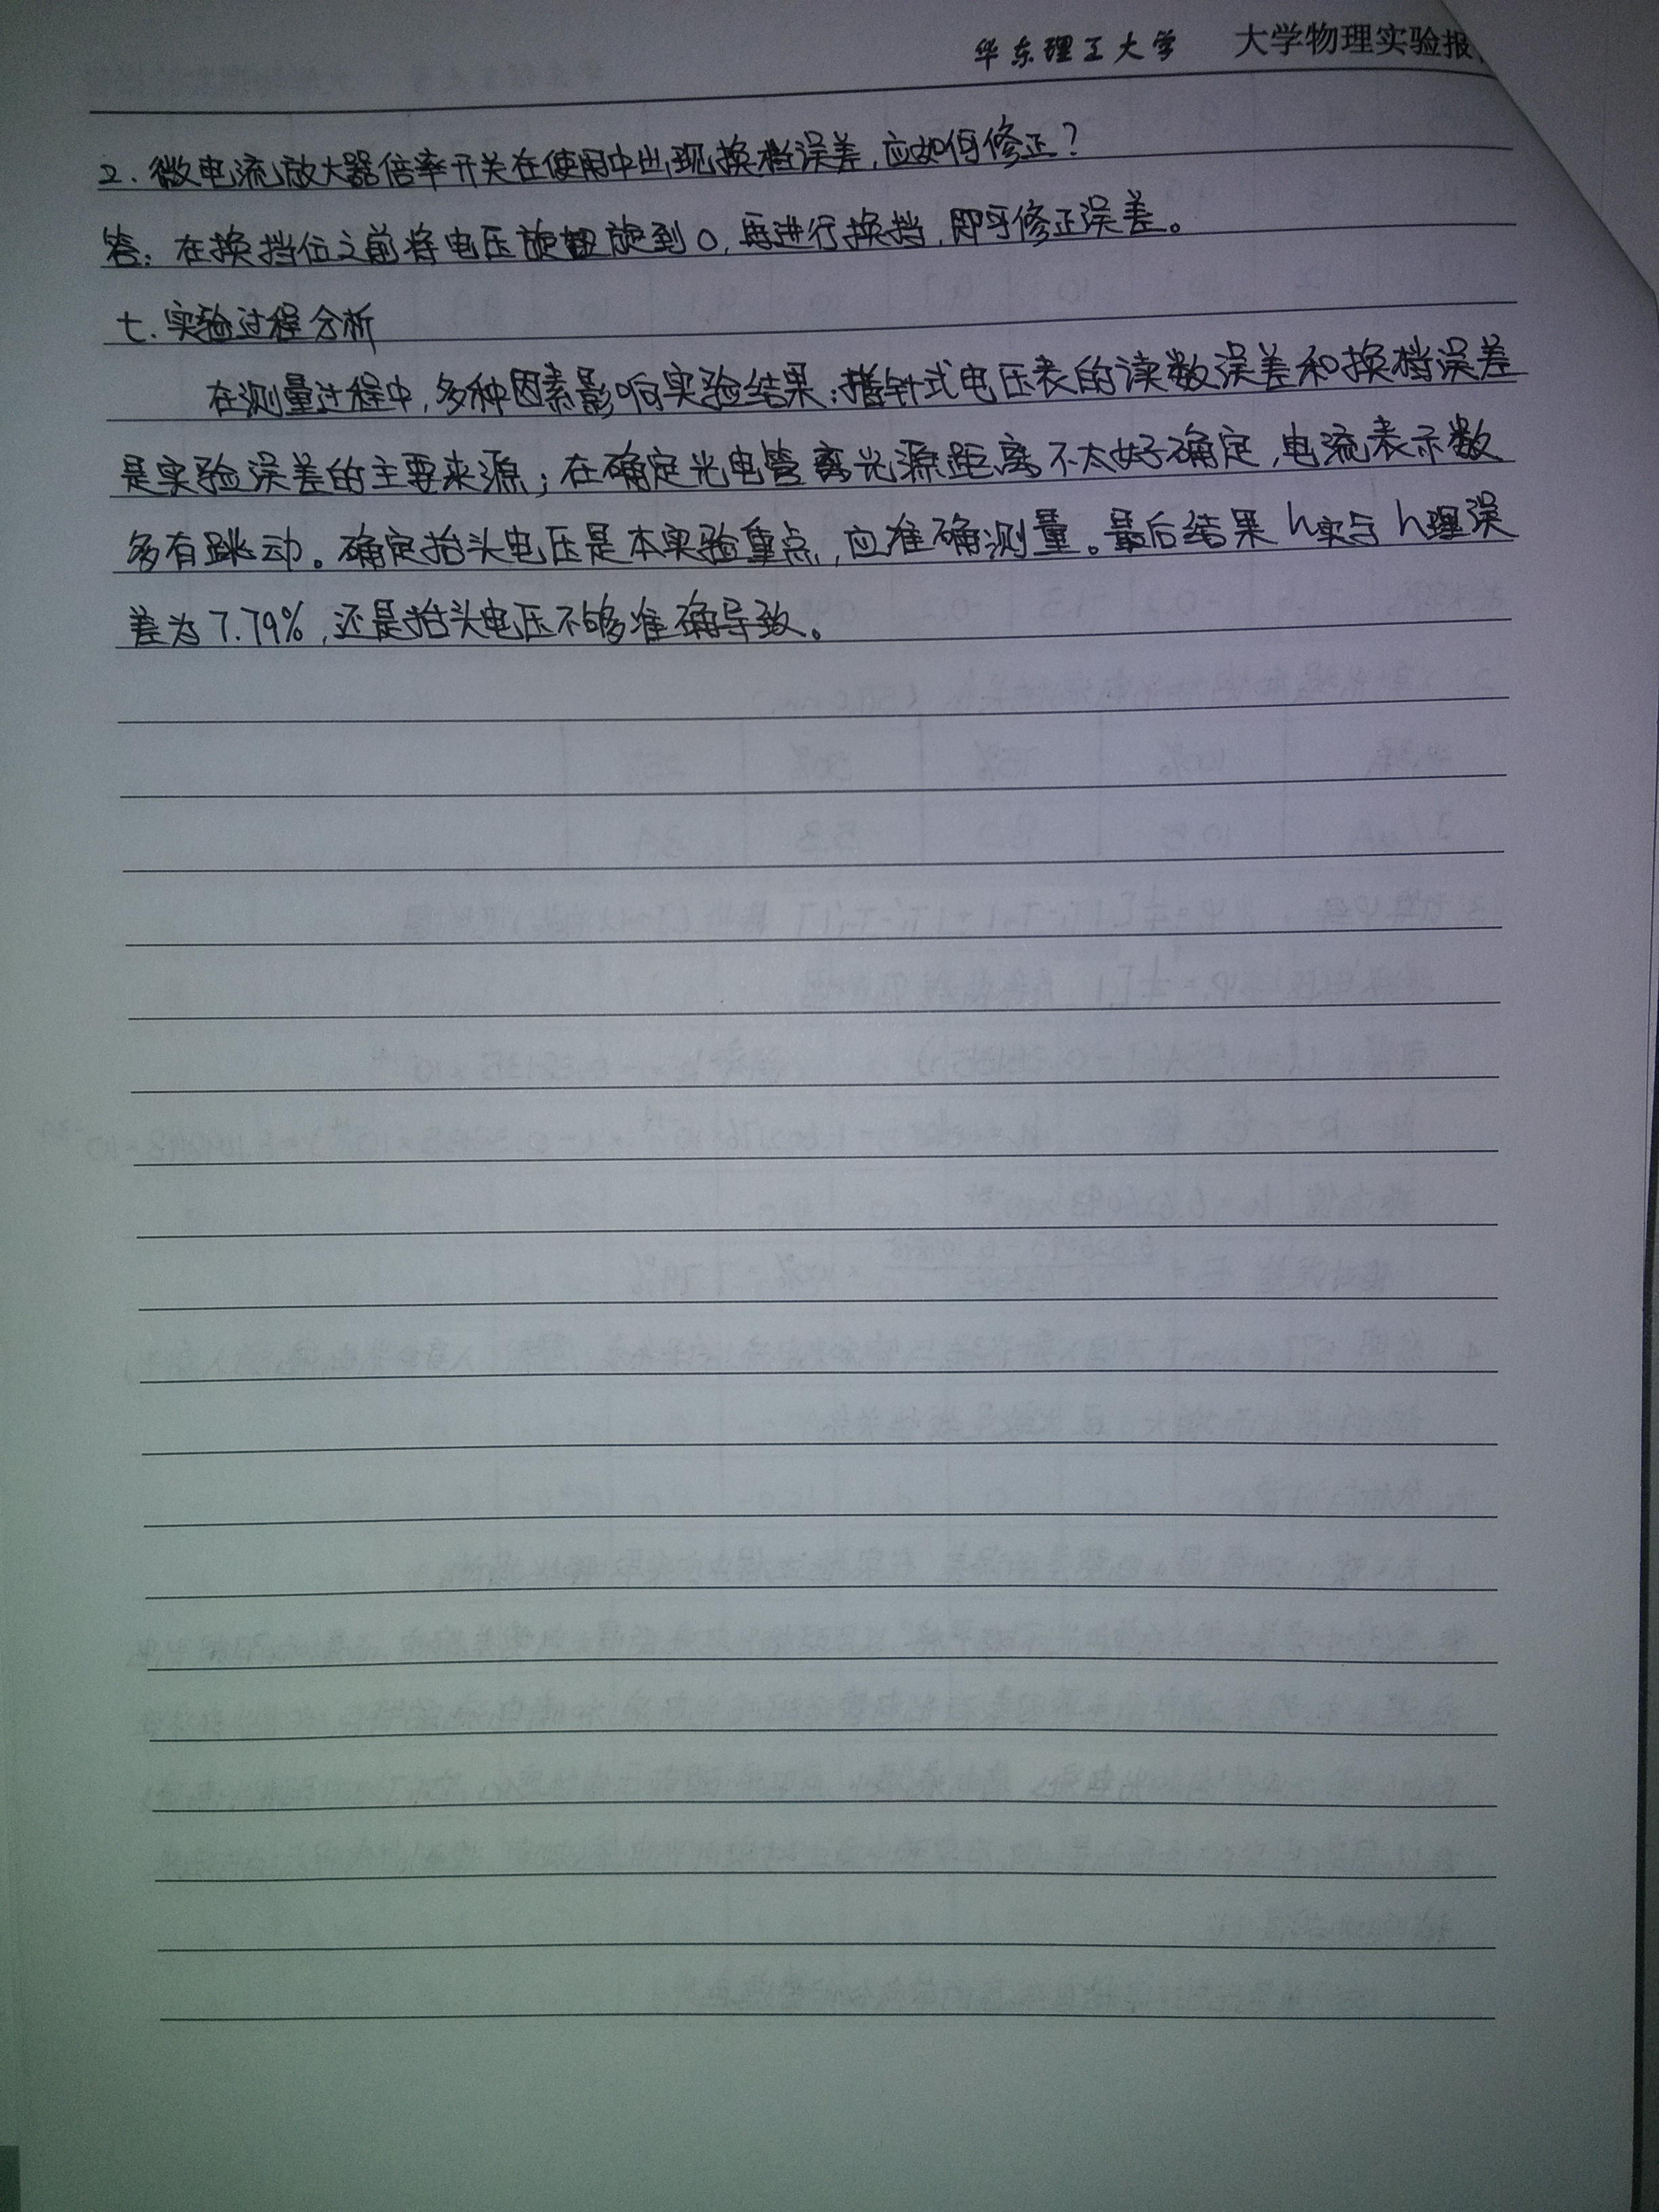 华东理工大学 大学物理实验报
2. 微电流放大器倍率开关在使用中出现换档误差,应如何修正?
答: 在换挡位之前将电压旋钮旋到0,再进行换挡,即可修正误差。
七. 实验过程分析
在测量过程中,多种因素影响实验结果:指针式电压表的读数误差和换档误差
是实验误差的主要来源;在确定光电管离光源距离不太好确定,电流表示数
多有跳动。确定抬头电压是本实验重点,应准确测量。最后结果h实与h理误
差为7.79%,还是抬头电压不够准确导致。